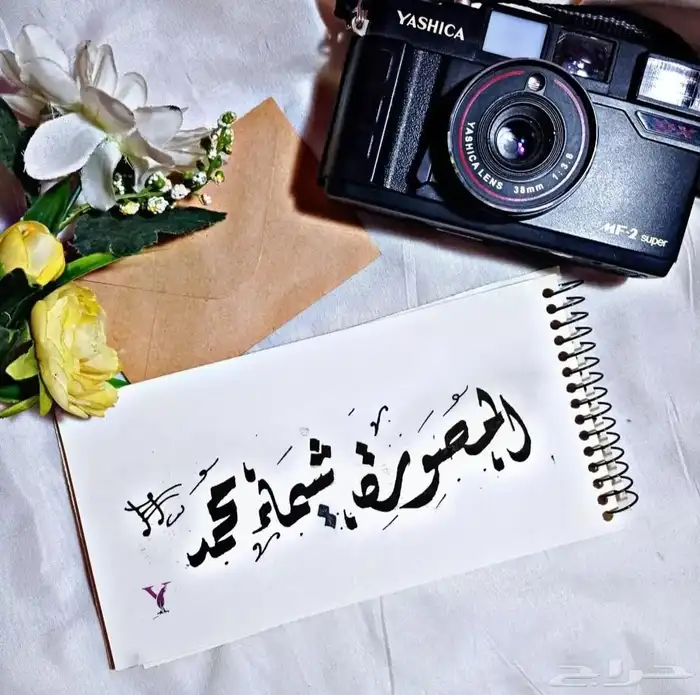 YASHICA
YASHICA LENS 38mm 1:3.8
MF-2 super
المصورة شيماء محمد
Y
حراج